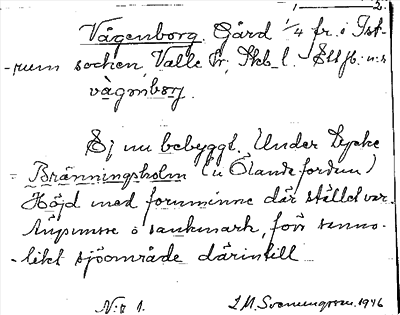 1 — 2.
Vågenborg. Gård 1/4 fr. i Ist-
-rum socken, Valle hr, Skb. l. Ell fb. n:s
vågnborg.
Ej nu bebyggt. Under Lycke
Bränningsholm (u Ölandsfordun)
Höjd med fornminne där stället var.
å sankmark, förr sanno-
-likt sjöområde därintill
N:o 1.
L. M. Svenungsson. 1946